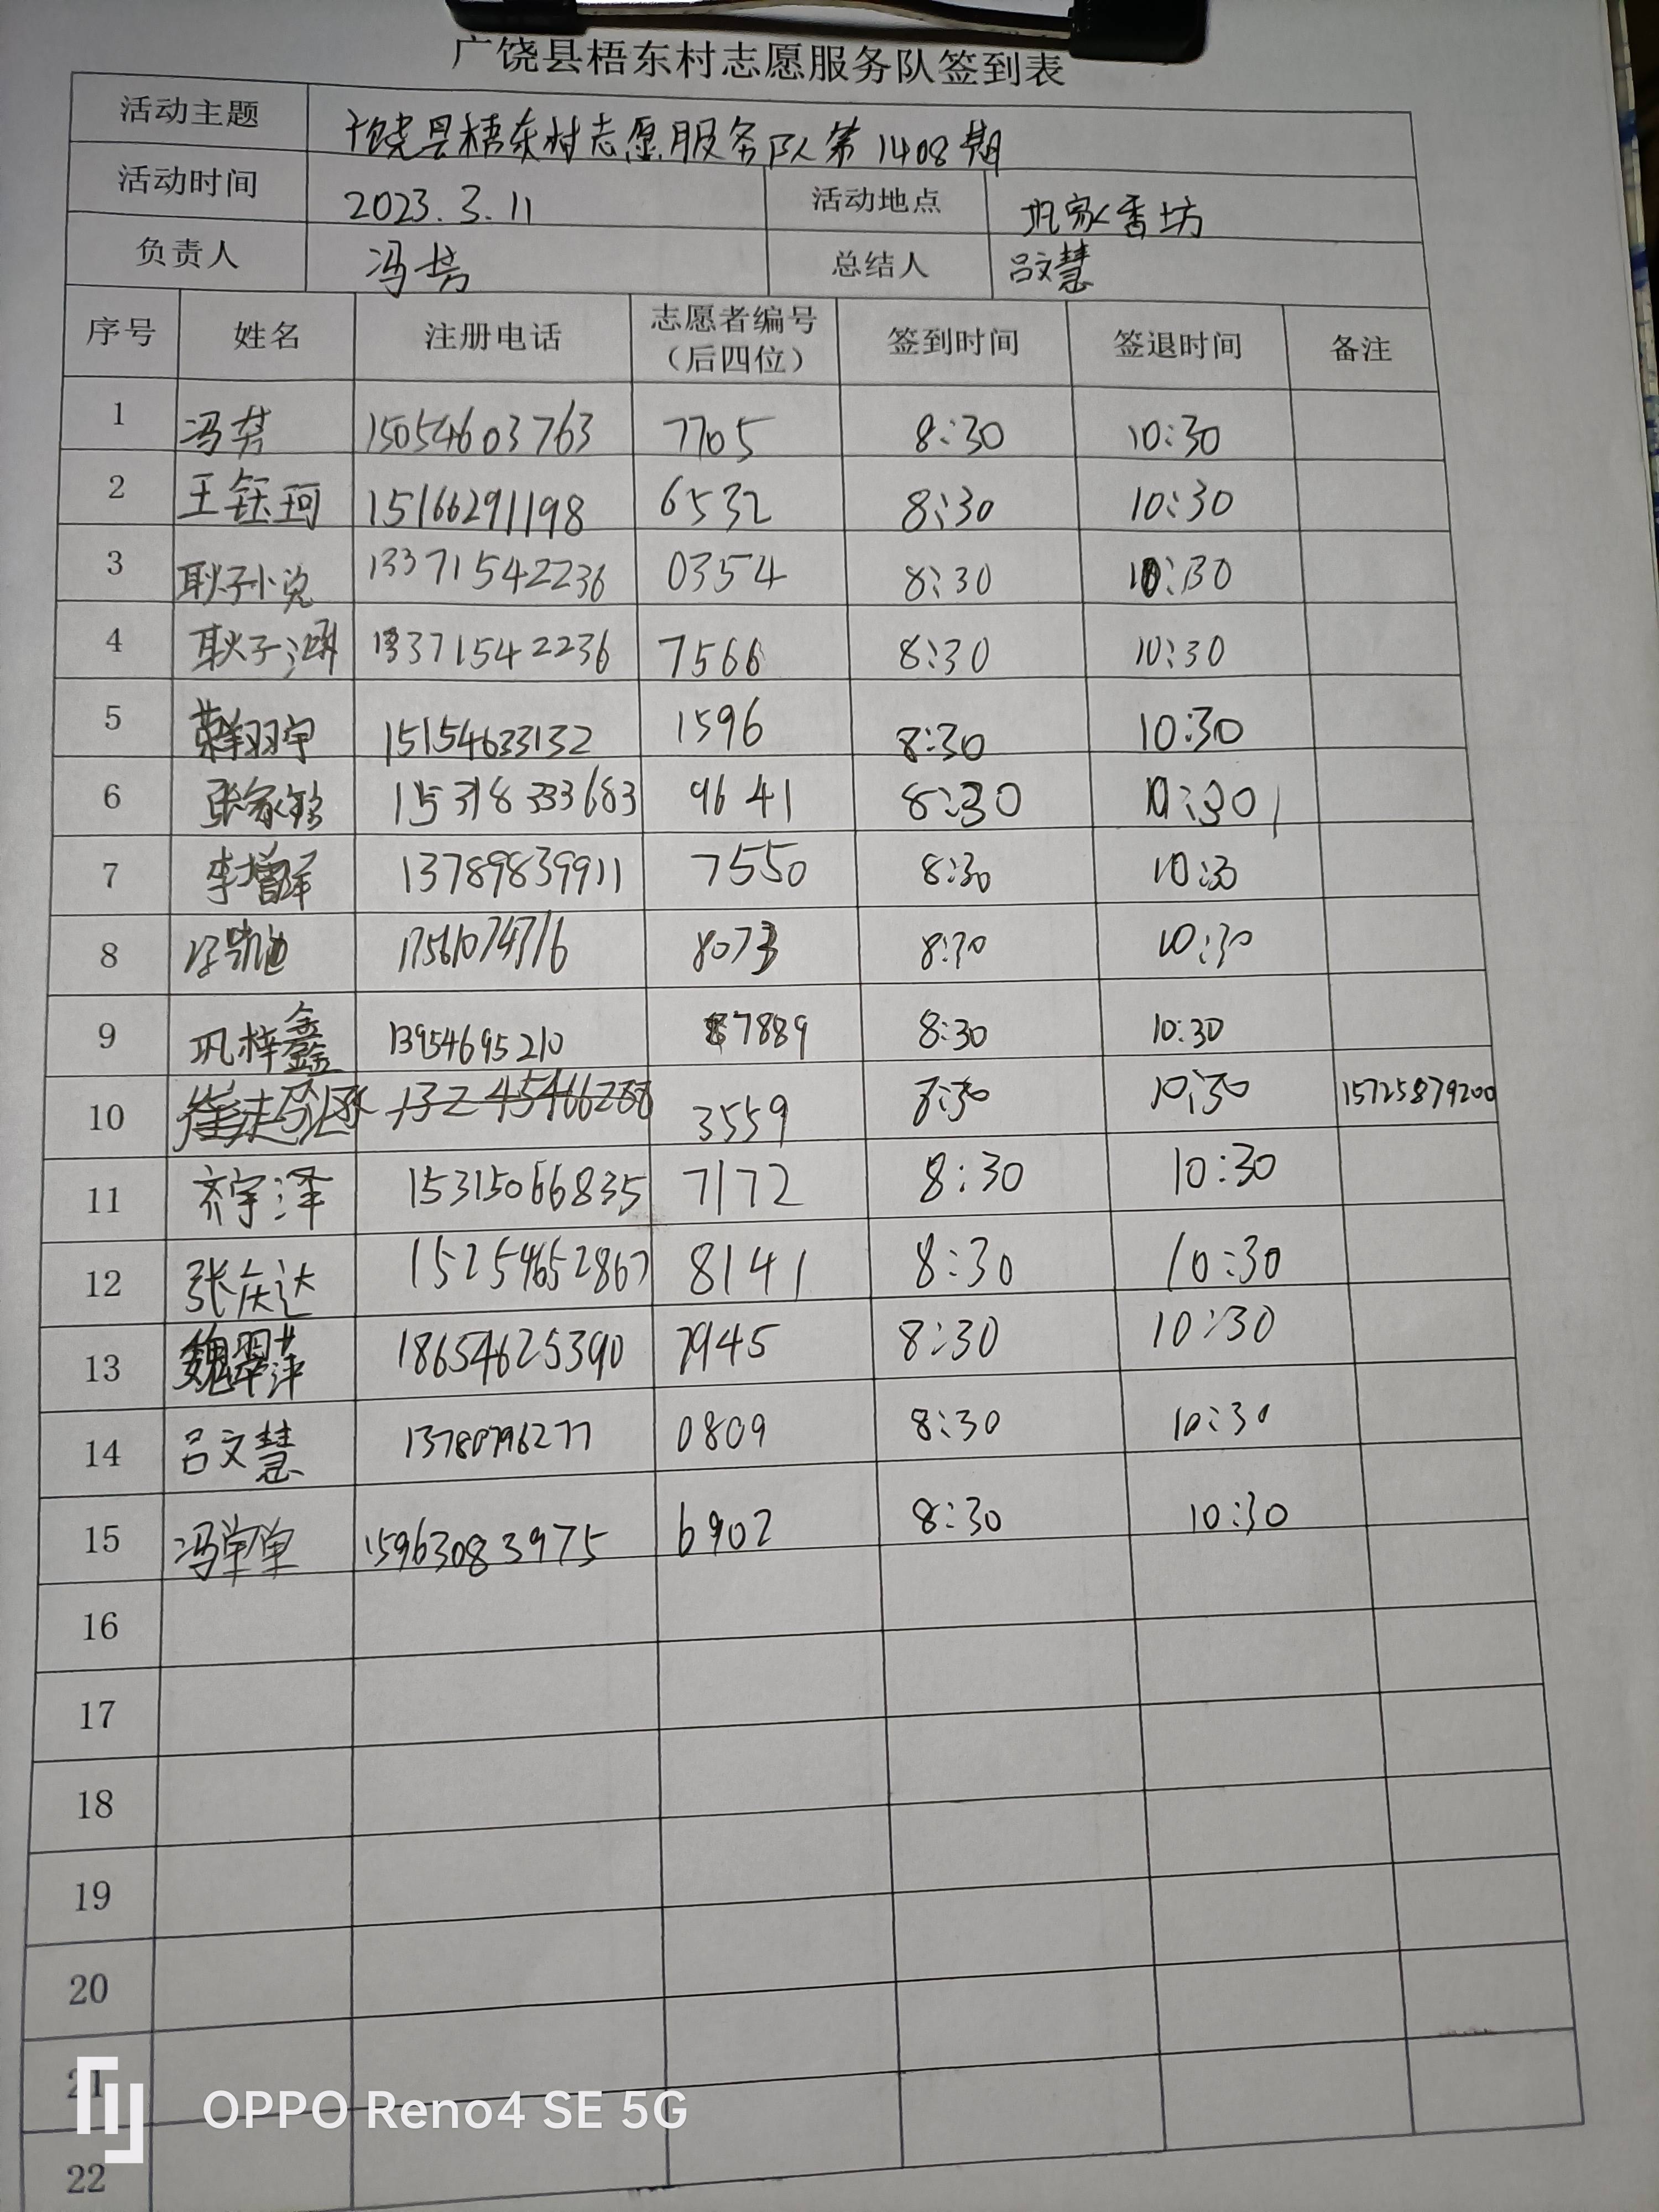 广饶县梧东村志愿服务队签到表
活动主题 广饶县梧东村志愿服务队第1408期
活动时间 2023.3.11 活动地点 巩家香坊
负责人 冯芳 总结人 吕文慧
序号 姓名 注册电话 志愿者编号（后四位） 签到时间 签退时间 备注
1 冯芳 15054603763 7705 8:30 10:30
2 王钰珂 15166291198 6532 8:30 10:30
3 耿子小兑 13371542236 0354 8:30 10:30
4 耿子涵 13371542236 7566 8:30 10:30
5 荣翔宇 15154633132 1596 8:30 10:30
6 张家铭 9641 8:30 10:30
7 李增辉 13789839911 7550 8:30 10:30
8 17561074716 8073 8:30 10:30
9 巩梓鑫 13954695210 7889 8:30 10:30
10 3559 8:30 10:30 15725879200
11 齐宇泽 15315066835 7172 8:30 10:30
12 张庆达 15254652867 8141 8:30 10:30
13 魏翠萍 18654625390 7945 8:30 10:30
14 吕文慧 13780796277 0809 8:30 10:30
15 冯单单 15963083975 6902 8:30 10:30
16
17
18
19
20
21
22
OPPO Reno4 SE 5G